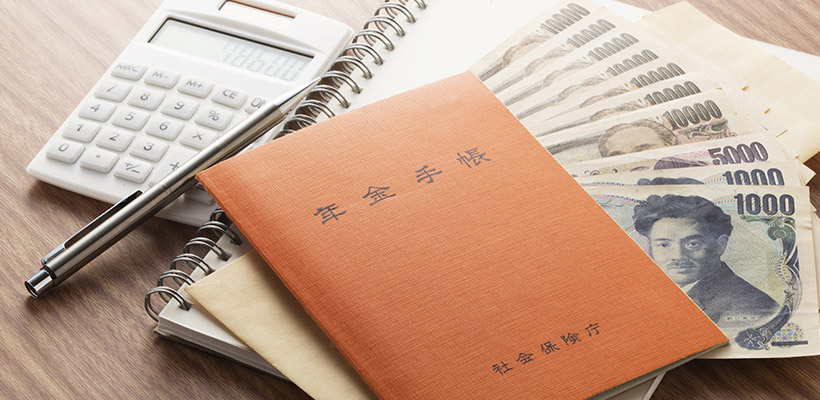 78600
MRC
M-
M+
CE
7
8
9
%
4
5
6
×
1
2
3
年金手帳
社会保険庁
10000
10000
10000
10000
10000
10000
10000
5000
1000
1000